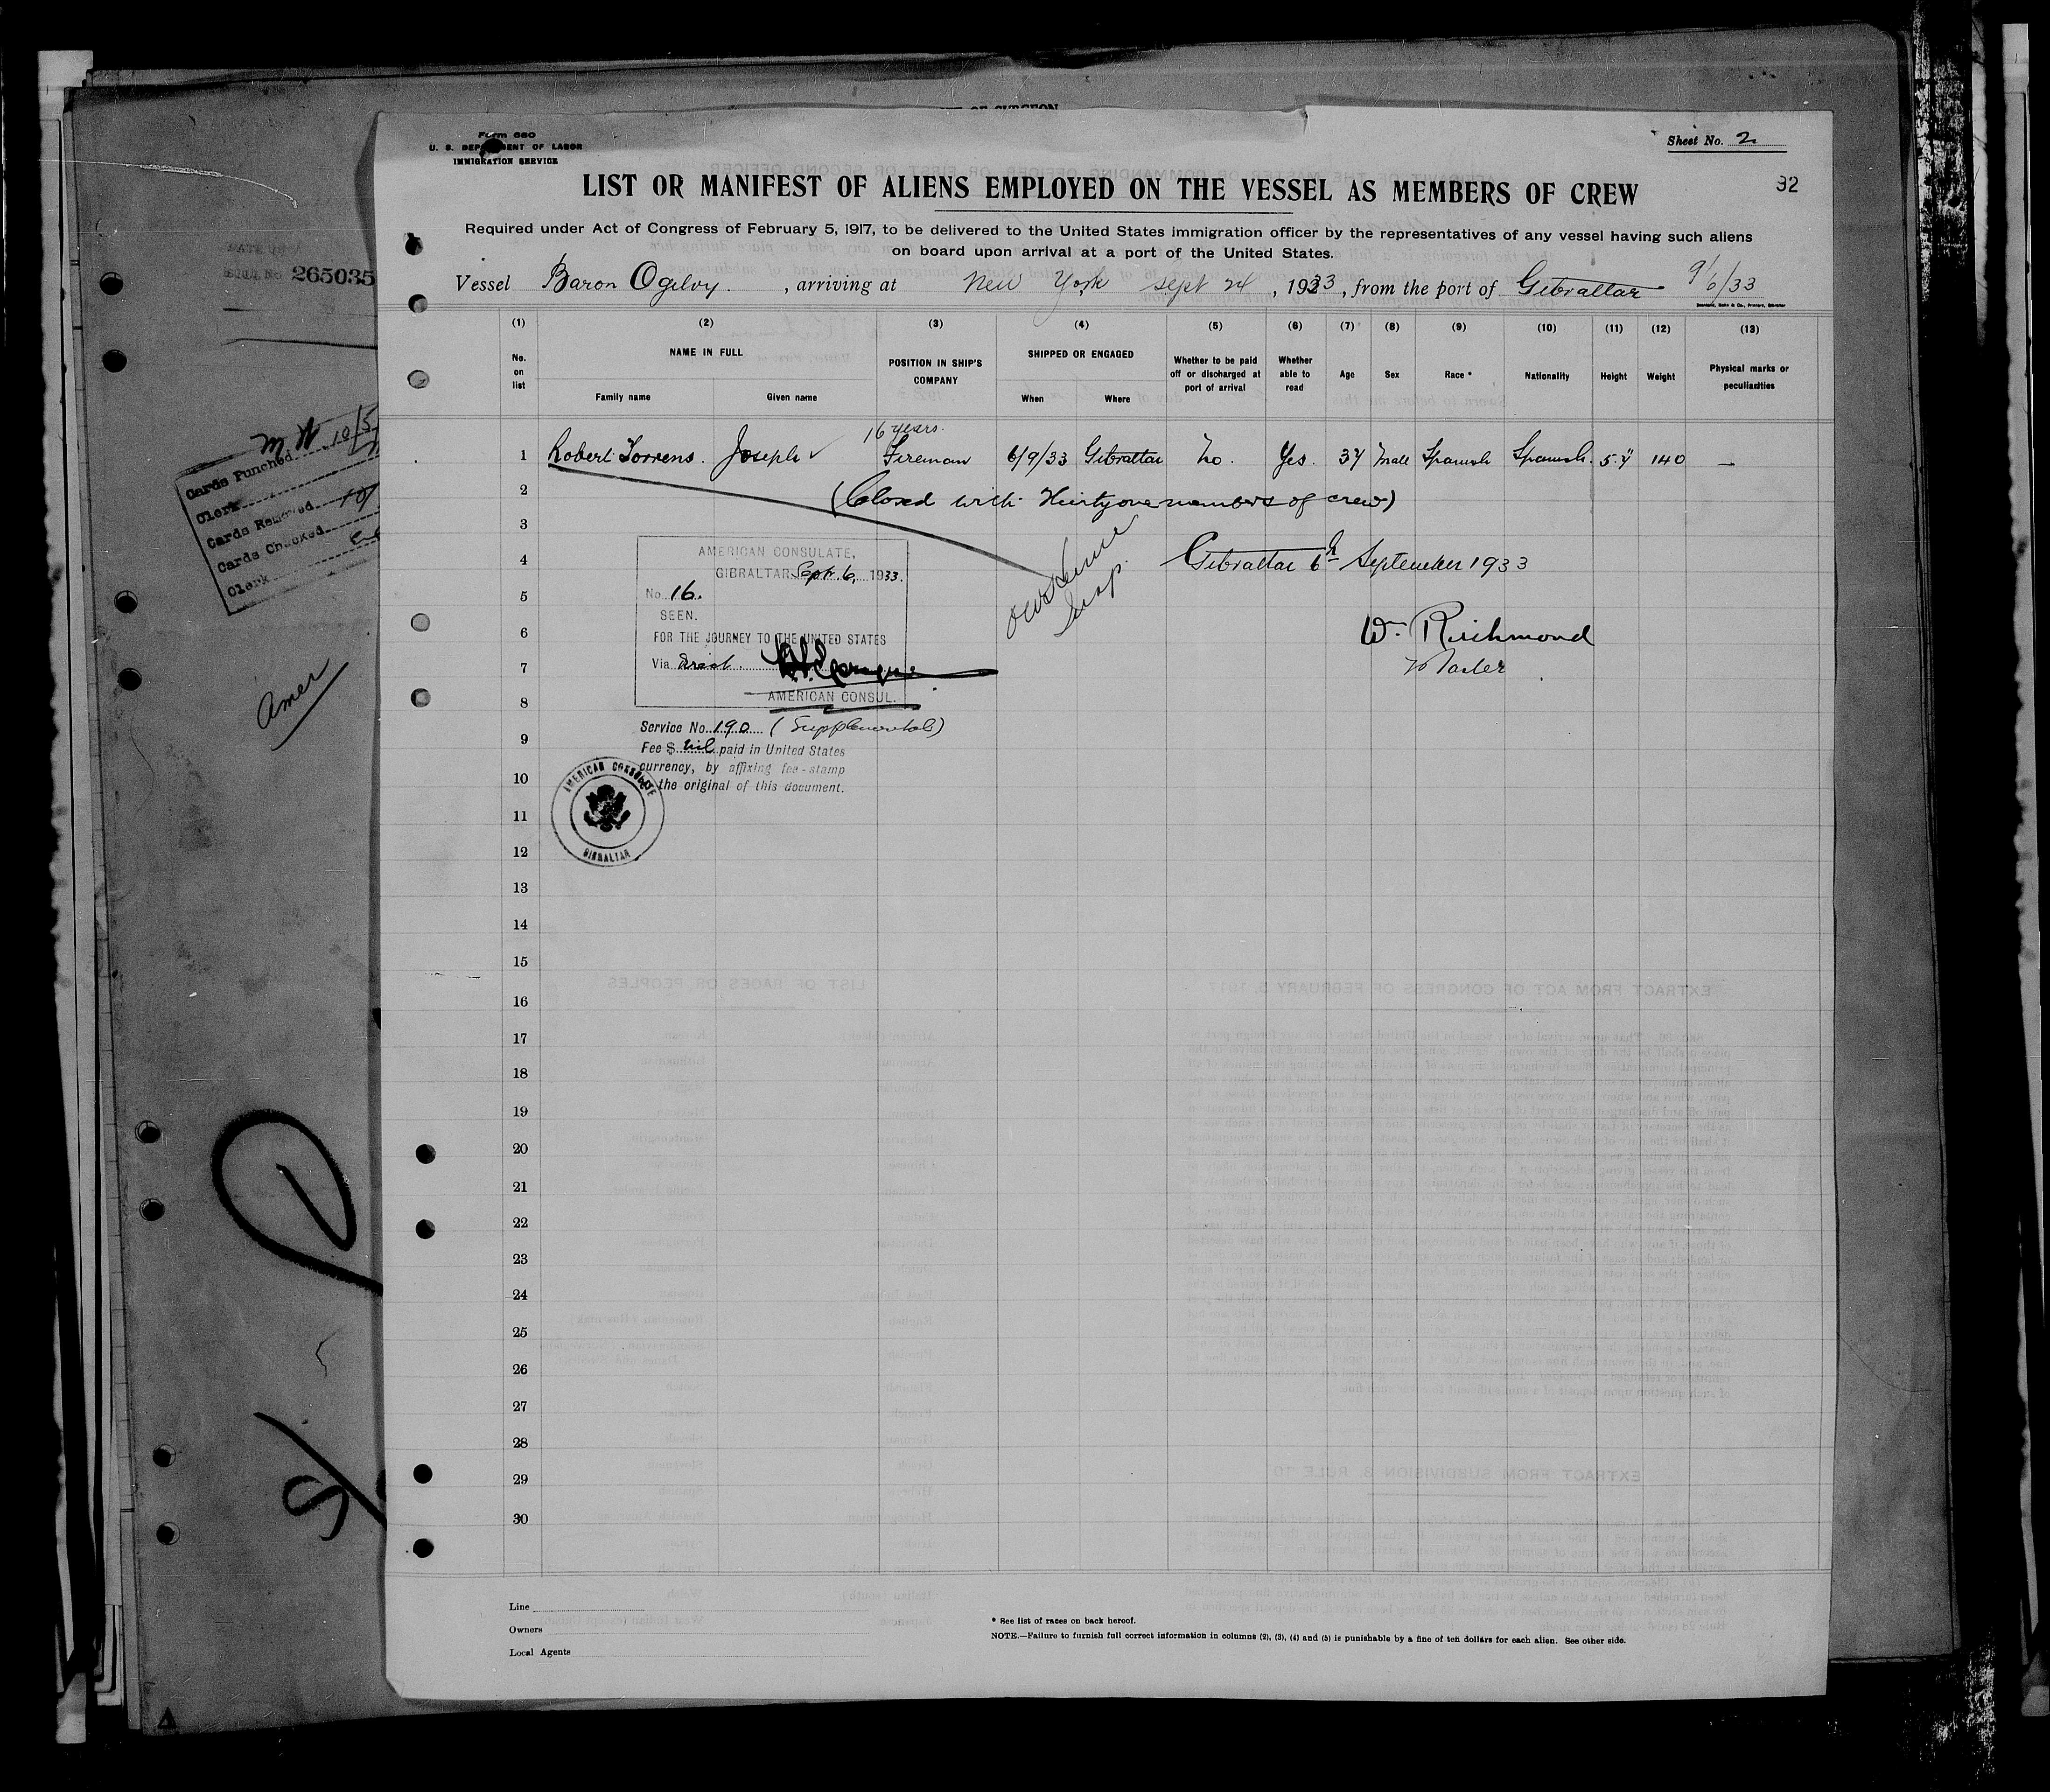 Form 680
U. S. DEPARTMENT OF LABOR
IMMIGRATION SERVICE
Sheet No. 2
LIST OR MANIFEST OF ALIENS EMPLOYED ON THE VESSEL AS MEMBERS OF CREW
92
Required under Act of Congress of February 5, 1917, to be delivered to the United States immigration officer by the representatives of any vessel having such aliens
on board upon arrival at a port of the United States.
Vessel Baron Ogilvy. , arriving at New York Sept 24 , 1933 , from the port of Gibraltar 9/6/33
(1) (2) (3) (4) (5) (6) (7) (8) (9) (10) (11) (12) (13)
No. on list NAME IN FULL Family name Given name POSITION IN SHIP'S COMPANY SHIPPED OR ENGAGED When Where Whether to be paid off or discharged at port of arrival Whether able to read Age Sex Race * Nationality Height Weight Physical marks or peculiarities
16 years.
1 Robert Torrens. Joseph Fireman 6/9/33 Gibraltar No. Yes. 37 Male Spanish Spanish. 5.7" 140 —
2 (Closed with Thirtyone members of crew)
3
4 Gibraltar 6th September 1933
AMERICAN CONSULATE,
GIBRALTAR Sept. 6, 1933.
No. 16.
5
SEEN.
6 FOR THE JOURNEY TO THE UNITED STATES
W. Richmond
7 Via direct.
Master
8 AMERICAN CONSUL.
Service No. 190 (Supplemental)
9
Fee $ nil paid in United States
currency, by affixing fee-stamp
10
the original of this document.
AMERICAN CONSULATE
GIBRALTAR
11
12
13
14
15
16
17
18
19
20
21
22
23
24
25
26
27
28
29
30
Line
Owners
Local Agents
* See list of races on back hereof.
NOTE.—Failure to furnish full correct information in columns (2), (3), (4) and (5) is punishable by a fine of ten dollars for each alien. See other side.
265035
Cards Punched
Clerk
Cards Removed
Cards Checked
Clerk
Amer